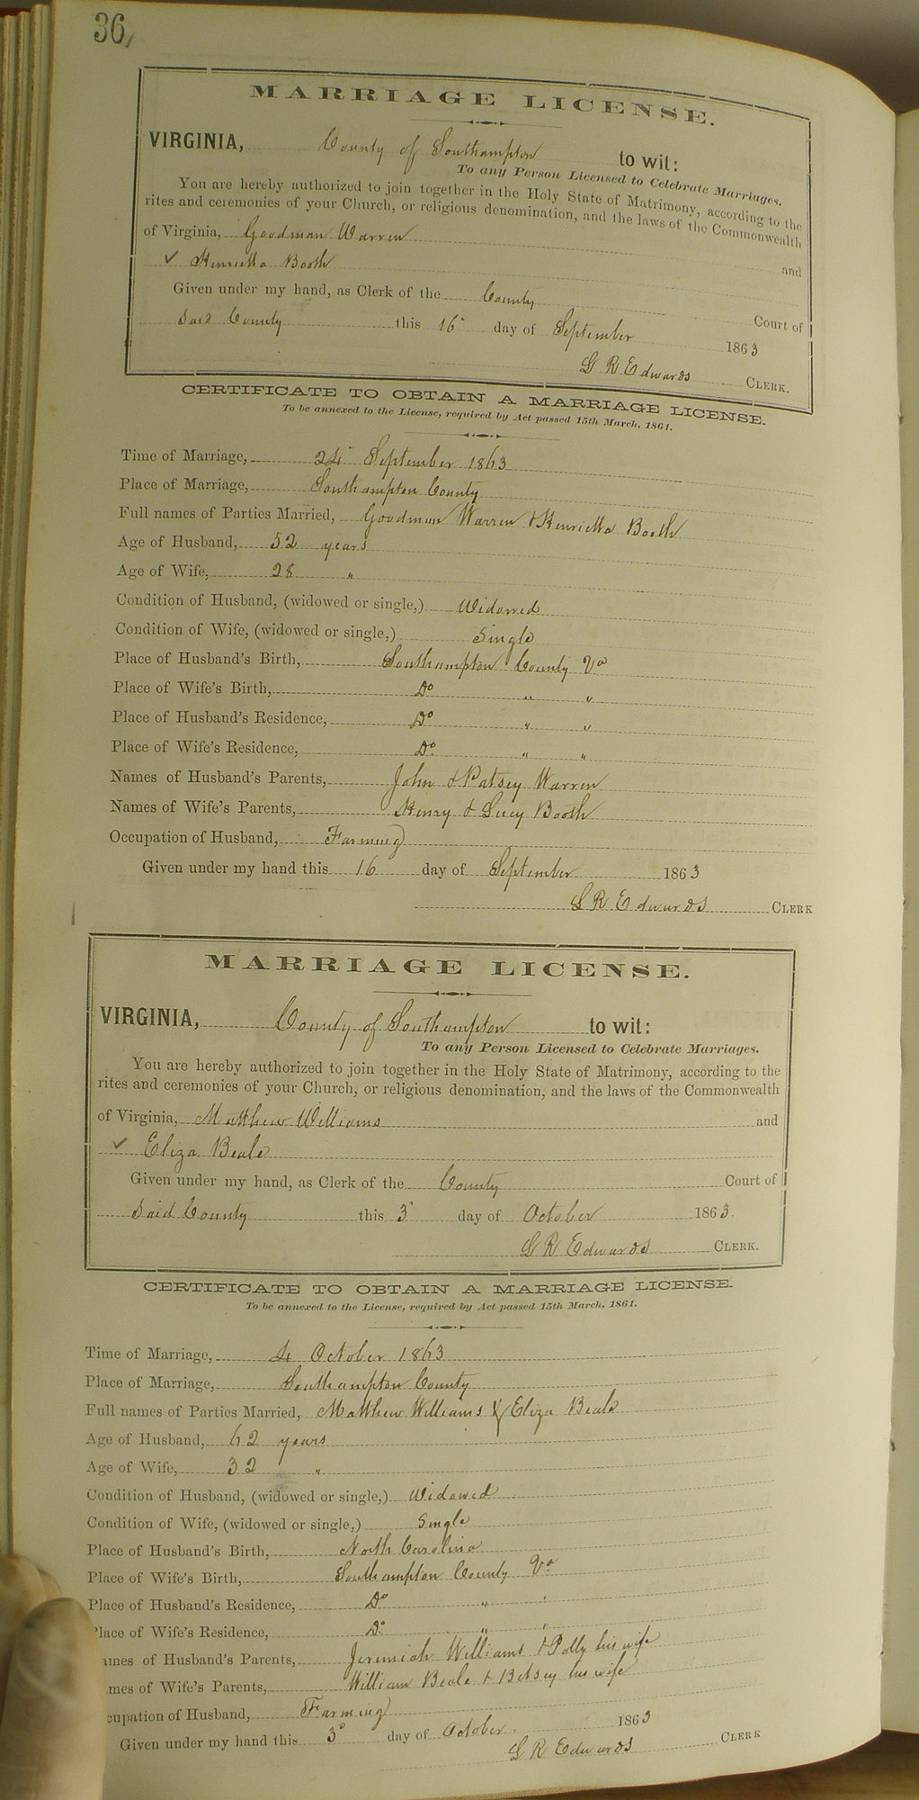 36,
MARRIAGE LICENSE.
VIRGINIA, County of Southampton to wit:
To any Person Licensed to Celebrate Marriages.
You are hereby authorized to join together in the Holy State of Matrimony, according to the
rites and ceremonies of your Church, or religious denomination, and the laws of the Commonwealth
of Virginia, Goodman Warren and
✓ Henrietta Booth
Given under my hand, as Clerk of the County Court of
Said County this 16 day of September 1863
L R Edwards CLERK.
CERTIFICATE TO OBTAIN A MARRIAGE LICENSE.
To be annexed to the License, required by Act passed 15th March, 1861.
Time of Marriage, 24 September 1863
Place of Marriage, Southampton County
Full names of Parties Married, Goodman Warren & Henrietta Booth
Age of Husband, 52 years
Age of Wife, 28 "
Condition of Husband, (widowed or single,) Widowed
Condition of Wife, (widowed or single,) Single
Place of Husband's Birth, Southampton County Va
Place of Wife's Birth, Do " "
Place of Husband's Residence, Do " "
Place of Wife's Residence, Do " "
Names of Husband's Parents, John & Patsey Warren
Names of Wife's Parents, Henry & Lucy Booth
Occupation of Husband, Farming
Given under my hand this 16 day of September 1863
L R Edwards CLERK
MARRIAGE LICENSE.
VIRGINIA, County of Southampton to wit:
To any Person Licensed to Celebrate Marriages.
You are hereby authorized to join together in the Holy State of Matrimony, according to the
rites and ceremonies of your Church, or religious denomination, and the laws of the Commonwealth
of Virginia, Matthew Williams and
✓ Eliza Beale
Given under my hand, as Clerk of the County Court of
Said County this 3 day of October 1863
L R Edwards CLERK.
CERTIFICATE TO OBTAIN A MARRIAGE LICENSE.
To be annexed to the License, required by Act passed 15th March, 1861.
Time of Marriage, 4 October 1863
Place of Marriage, Southampton County
Full names of Parties Married, Matthew Williams & Eliza Beale
Age of Husband, 62 years
Age of Wife, 32 "
Condition of Husband, (widowed or single,) Widowed
Condition of Wife, (widowed or single,) Single
Place of Husband's Birth, North Carolina
Place of Wife's Birth, Southampton County Va
Place of Husband's Residence, Do " "
Place of Wife's Residence, Do " "
ames of Husband's Parents, Jeremiah Williams & Polly his wife
mes of Wife's Parents, William Beale & Betsey his wife
cupation of Husband, Farming
Given under my hand this 3 day of October 1863
L R Edwards CLERK